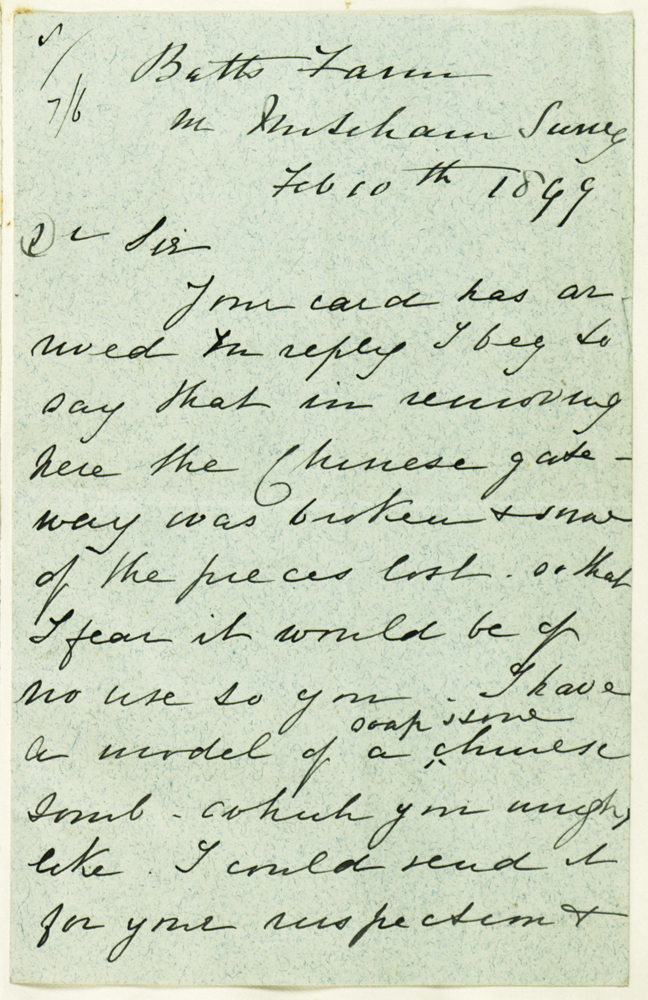 5/
7/6
Batts Farm
Nr Mitcham Surrey
Feb 10th 1899
Dr Sir
Your card has ar-
rived In reply I beg to
say that in removing
here the Chinese gate-
way was broken & some
of the pieces lost. so that
I fear it would be of
no use to you. I have
soap stone
a model of a chinese
tomb - which you might
like. I could send it
for your inspection &